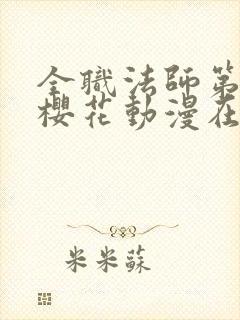 全職法師第
櫻花動漫在
米米蘇